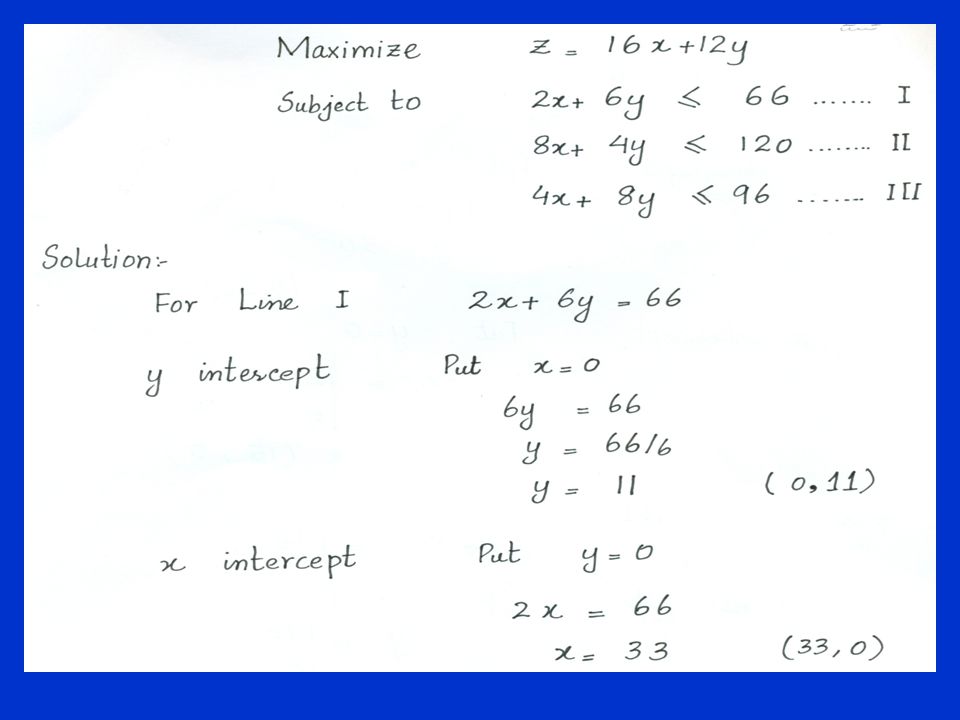 Maximize Z = 16x+12y
Subject to 2x+ 6y ⩽ 66 ....... I
8x+ 4y ⩽ 120 ........ II
4x+ 8y ⩽ 96 ....... III
Solution:-
For Line I 2x+ 6y = 66
y intercept Put x=0
6y = 66
y = 66/6
y = 11 (0,11)
x intercept Put y=0
2x = 66
x= 33 (33,0)